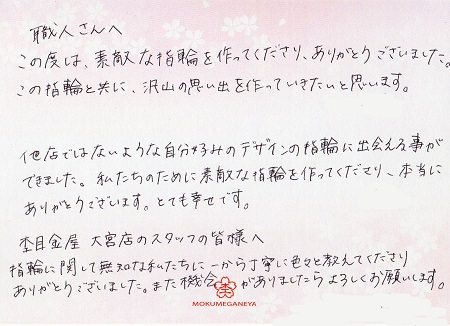 職人さんへ
この度は、素敵な指輪を作ってくださり、ありがとうございました。
この指輪と共に、沢山の思い出を作っていきたいと思います。
他店ではないような自分好みのデザインの指輪に出会える事が
できました。私たちのために素敵な指輪を作ってくださり、本当に
ありがとうございます。とても幸せです。
杢目金屋 大宮店のスタッフの皆様へ
指輪に関して無知な私たちに一から丁寧に色々と教えてくださり
ありがとうございました。また機会がありましたらよろしくお願いします。
MOKUMEGANEYA